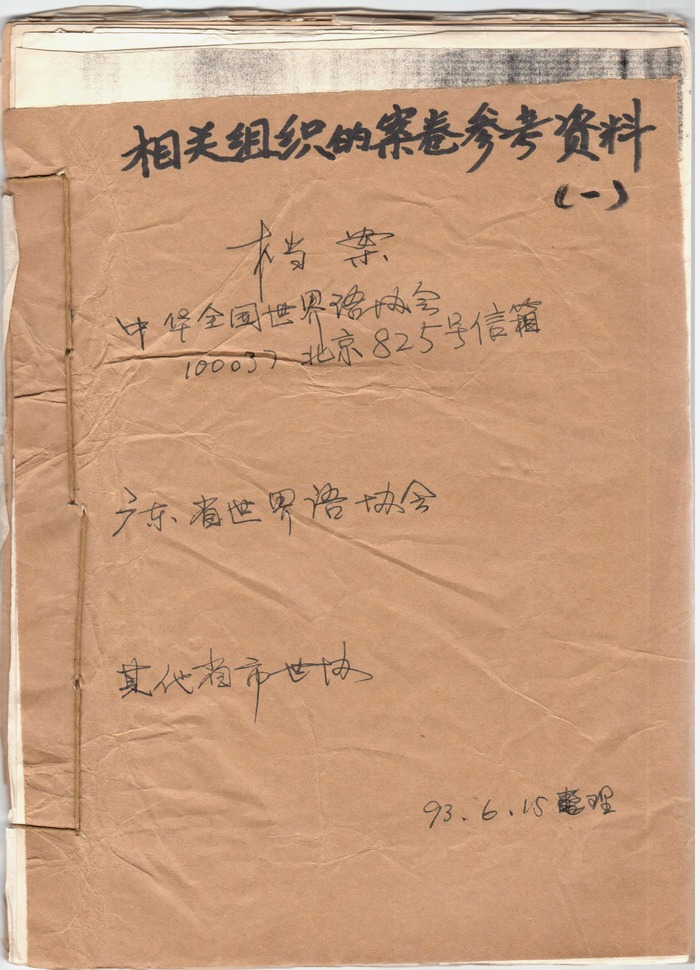 相关组织的案卷参考资料
(一)
档案
中华全国世界语协会
100037 北京825号信箱
广东省世界语协会
其他省市世协
93.6.15整理